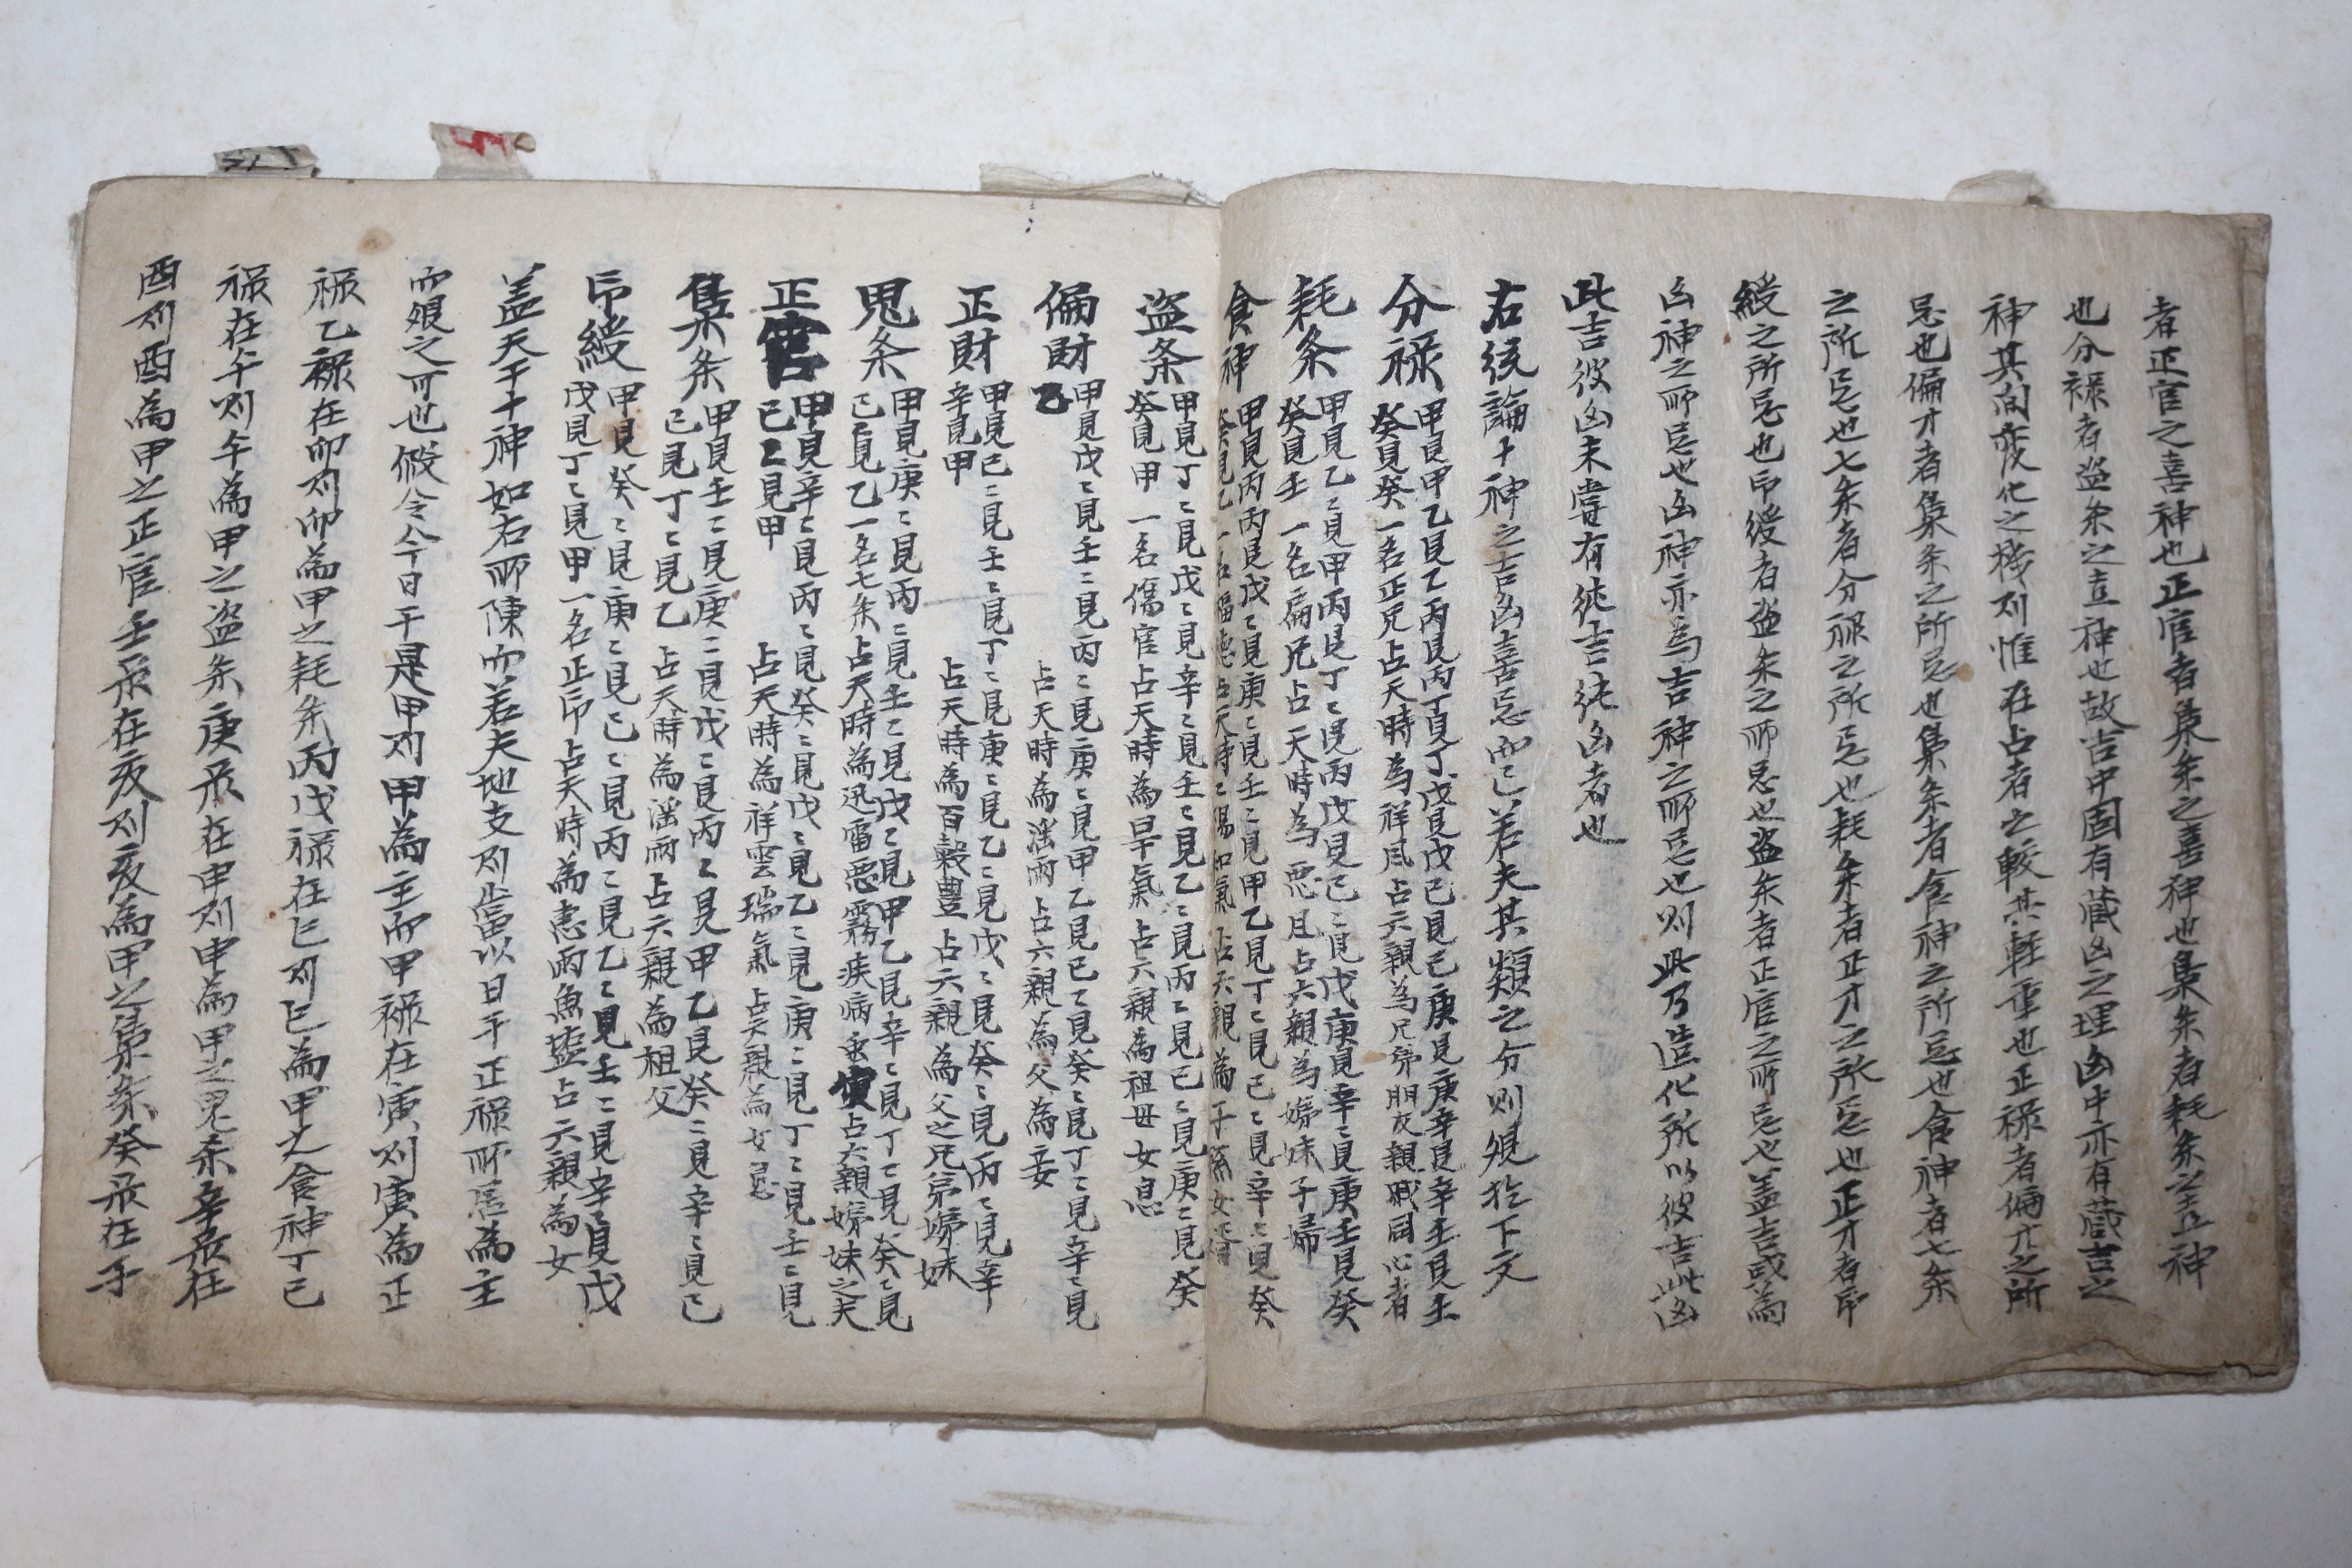 者正官之喜神也正官者梟杀之喜神也梟杀者耗杀之喜神
也分禄者盗杀之喜神也故吉中固有藏凶之理凶中亦有藏吉之
神其間变化之機則惟在占者之較其軽重也正禄者偏才之所
忌也偏才者梟杀之所忌也梟杀者食神之所忌也食神者七杀
之所忌也七杀者分禄之所忌也耗杀者正才之所忌也正才者印
綬之所忌也印綬者盗杀之所忌也盗杀者正官之所忌也盖吉或為
凶神之所忌也凶神亦為吉神之所忌也則此乃造化所以彼吉此凶
此吉彼凶未嘗有純吉純凶者也
右統論十神之吉凶喜忌而已若夫其類之分則規於下文
分禄 甲見甲乙見乙丙見丙丁見丁戊見戊己見己庚見庚辛見辛壬見壬
癸見癸一名正兄占天時為祥風占六親為兄弟朋友親戚同心者
耗杀 甲見乙乙見甲丙見丁丁見丙戊見己己見戊庚見辛辛見庚壬見癸
癸見壬 一名扁兄占天時為惡且占六親為婦妹子婦
食神 甲見丙丙見戊戊見庚庚見壬壬見甲乙見丁丁見己己見辛辛見癸
癸見乙一名福德占天時陽和氣占六親為子孫女婿
盗杀 甲見丁丁見戊戊見辛辛見壬壬見乙乙見丙丙見己己見庚庚見癸
癸見甲 一名傷官占天時為旱氣占六親為祖母女息
偏財 甲見戊戊見壬壬見丙丙見庚庚見甲乙見己己見癸癸見丁丁見辛辛見
乙 占天時為淫雨占六親為父為妾
正財 甲見己己見壬壬見丁丁見庚庚見乙乙見戊戊見癸癸見丙丙見辛
辛見甲 占天時為百穀豊占六親為父之兄弟婦妹
鬼杀 甲見庚庚見丙丙見壬壬見戊戊見甲乙見辛辛見丁丁見癸癸見
己己見乙一名七杀占天時為迅雷惡霧疾病虫 占六親婦妹之夫
正官 甲見辛辛見丙丙見癸癸見戊戊見乙乙見庚庚見丁丁見壬壬見
己己見甲 占天時為祥雲瑞氣占六親為女息
梟杀 甲見壬壬見庚庚見戊戊見丙丙見甲乙見癸癸見辛辛見己
己見丁丁見乙 占天時為淫雨占六親為祖父
印綬 甲見癸癸見庚庚見己己見丙丙見乙乙見壬壬見辛辛見戊
戊見丁丁見甲一名正印占天時為恵雨魚塩占六親為女
盖天干十神如右所陳而若夫地支則當以日干正禄所居為主
而規之可也假令今日干是甲則甲為主而甲禄在寅則寅為正
禄乙禄在卯則卯為甲之耗杀丙戊禄在巳則巳為甲之食神丁己
禄在午則午為甲之盗杀庚禄在申則申為甲之鬼杀辛禄在
酉則酉為甲之正官壬禄在亥則亥為甲之梟杀癸禄在子